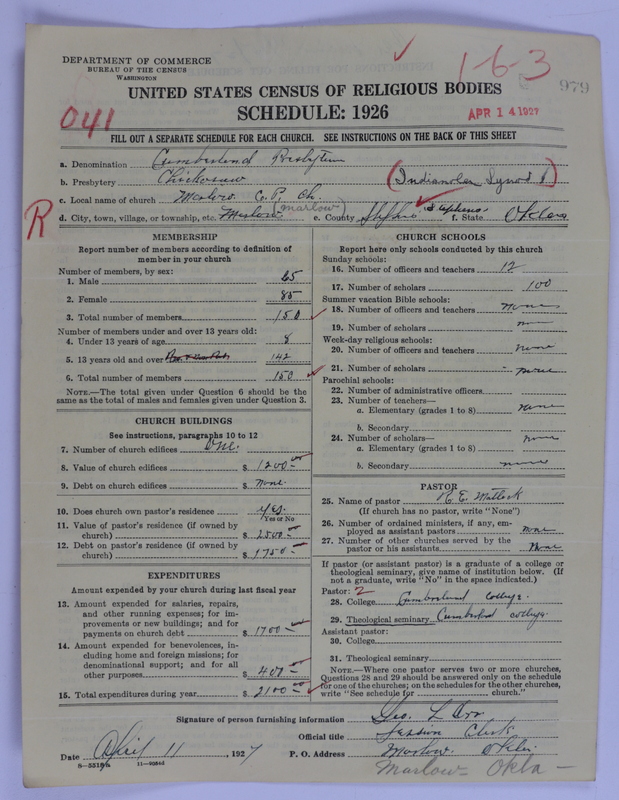 DEPARTMENT OF COMMERCE
BUREAU OF THE CENSUS
WASHINGTON
1-6-3
979
UNITED STATES CENSUS OF RELIGIOUS BODIES
SCHEDULE: 1926
APR 14 1927
041
FILL OUT A SEPARATE SCHEDULE FOR EACH CHURCH. SEE INSTRUCTIONS ON THE BACK OF THIS SHEET
a. Denomination Cumberland Presbyterian
b. Presbytery Chickasaw (Indianola Synod)
c. Local name of church Marlow C. P. Ch.
d. City, town, village, or township, etc. Marlow (Marlow) e. County Stephens f. State Oklahoma
R
MEMBERSHIP
Report number of members according to definition of
member in your church
Number of members, by sex:
1. Male 65
2. Female 85
3. Total number of members 150
Number of members under and over 13 years old:
4. Under 13 years of age 8
5. 13 years old and over 142
6. Total number of members 150
NOTE.—The total given under Question 6 should be
same as the total of males and females given under Question 3.
CHURCH BUILDINGS
See instructions, paragraphs 10 to 12
7. Number of church edifices One
8. Value of church edifices $ 1200 00
9. Debt on church edifices $ None
10. Does church own pastor's residence yes
Yes or No
11. Value of pastor's residence (if owned by
church) $ 2500 00
12. Debt on pastor's residence (if owned by
church) $ 1750 00
EXPENDITURES
Amount expended by your church during last fiscal year
13. Amount expended for salaries, repairs,
and other running expenses; for im-
provements or new buildings; and for
payments on church debt $ 1700 00
14. Amount expended for benevolences, in-
cluding home and foreign missions; for
denominational support; and for all
other purposes $ 400 00
15. Total expenditures during year $ 2100 00
CHURCH SCHOOLS
Report here only schools conducted by this church
Sunday schools:
16. Number of officers and teachers 12
17. Number of scholars 100
Summer vacation Bible schools:
18. Number of officers and teachers none
19. Number of scholars none
Week-day religious schools:
20. Number of officers and teachers none
21. Number of scholars none
Parochial schools:
22. Number of administrative officers
23. Number of teachers—
a. Elementary (grades 1 to 8) none
b. Secondary
24. Number of scholars— none
a. Elementary (grades 1 to 8)
b. Secondary none
PASTOR
25. Name of pastor R. E. Matlock
(If church has no pastor, write "None")
26. Number of ordained ministers, if any, em-
ployed as assistant pastors none
27. Number of other churches served by the
pastor or his assistants None
If pastor (or assistant pastor) is a graduate of a college or
theological seminary, give name of institution below. (If
not a graduate, write "No" in the space indicated.)
Pastor: 2
28. College Cumberland College.
29. Theological seminary Cumberland College
Assistant pastor:
30. College
31. Theological seminary
NOTE.—Where one pastor serves two or more churches,
Questions 28 and 29 should be answered only on the schedule
for one of the churches; on the schedules for the other churches,
write "See schedule for church."
Signature of person furnishing information Geo. L. Orr
Official title Session Clerk
Date April 11, 1927 P. O. Address Marlow. Okla
8-5518a 11-9064d
Marlow - Okla -